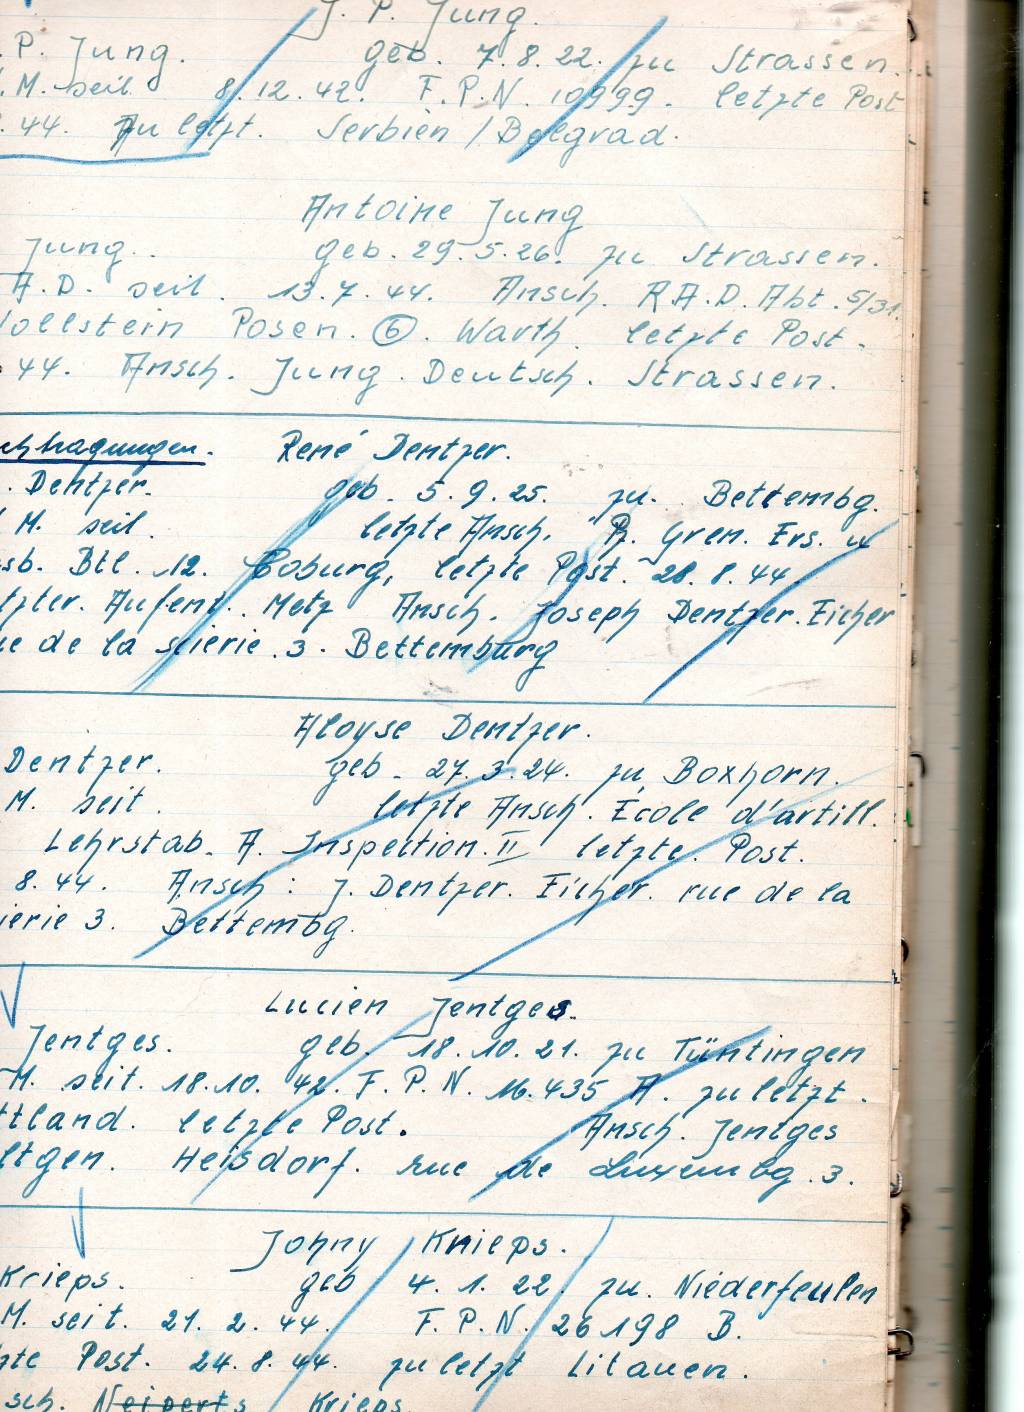 J. P. Jung.
. P. Jung. geb. 7. 8. 22. zu Strassen.
. M. seit 8. 12. 42. F. P. N. 10999. letzte Post
. 44. Zu letzt. Serbien / Belgrad.
Antoine Jung
Jung.. geb. 29. 5. 26. zu Strassen.
A. D. seit. 13. 7. 44. Ansch. R A. D. Abt. 5/31.
ollstein Posen. 6. Warth. letzte Post.
44. Ansch. Jung. Deutsch. Strassen.
chtragungen. René Dentzer.
. Dentzer. geb. 5. 9. 25. zu. Bettembg.
M. seit. letzte Ansch. Pz. Gren. Ers. u
sb. Btl. 12. Coburg, letzte Post. 28. 8. 44.
tzter. Aufent. Metz Ansch. Joseph Dentzer. Eicher
e de la scierie. 3. Bettemburg
Aloyse Dentzer.
Dentzer. geb. 27. 3. 24. zu Boxhorn.
M. seit. letzte Ansch. École d'artill.
Lehrstab. A. Inspection. II letzte. Post.
8. 44. Ansch: J. Dentzer. Eicher. rue de la
ierie 3. Bettembg.
Lucien Jentges.
Jentges. geb. 18. 10. 21. zu Tüntingen
M. seit. 18. 10. 42. F. P. N. 16.435 A. zu letzt.
ttland. letzte Post. Ansch. Jentges
ltgen. Heisdorf. rue de Luxembg. 3.
Johny Krieps.
Krieps. geb 4. 1. 22. zu. Niederfeulen
M. seit. 21. 2. 44. F. P. N. 26198 B.
zte Post. 24. 8. 44. zu letzt Litauen.
sch. Neiperts Krieps.